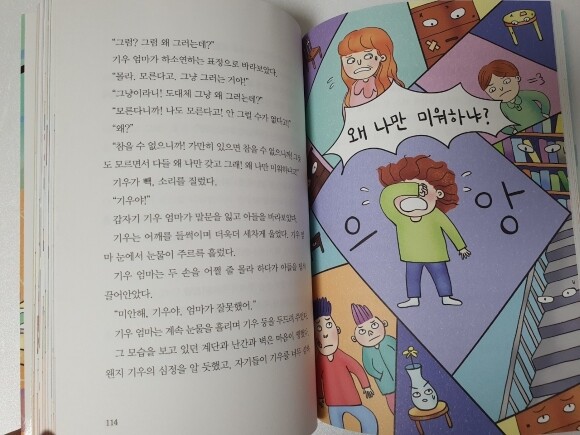 "그럼? 그럼 왜 그러는데?"
기우 엄마가 하소연하는 표정으로 바라보았다.
"몰라, 모른다고. 그냥 그러는 거야!"
"그냥이라니! 도대체 그냥 왜 그러는데?"
"모른다니까! 나도 모른다고! 안 그럴 수가 없다고!"
"왜?"
"참을 수 없으니까! 가만히 있으면 참을 수 없으니까!
도 모르면서 다들 왜 나만 갖고 그래! 왜 나만 미워하냐고!"
기우가 빽, 소리를 질렀다.
"기우야!"
갑자기 기우 엄마가 말문을 잃고 아들을 바라보았다.
기우는 어깨를 들썩이며 더욱더 세차게 울었다. 기우 엄
마 눈에서 눈물이 주르륵 흘렀다.
기우 엄마는 두 손을 어쩔 줄 몰라 하다가 아들을
끌어안았다.
"미안해, 기우야. 엄마가 잘못했어."
기우 엄마는 계속 눈물을 흘리며 기우 등을 두드려
그 모습을 보고 있던 계단과 난간과 벽은 마음이
왠지 기우의 심정을 알 듯했고, 자기들이 기우를 너무
114
왜 나만 미워하냐?
으 앙